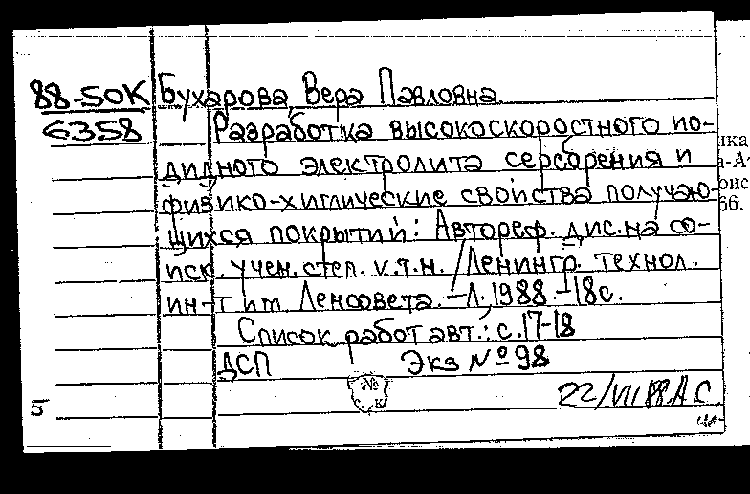 88-50К Бухарова, Вера Павловна
6358 Разработка высокоскоростного ио-
дидного электролита серебрения и
физико-химические свойства получаю-
щихся покрытий: Автореф. дис. на со-
иск. учен. степ. к.т.н. / Ленингр. технол.
ин-т им. Ленсовета. — Л., 1988. — 18 с.
Список работ авт.: с. 17-18
ДСП Экз № 98
22/VII 88 А С
5